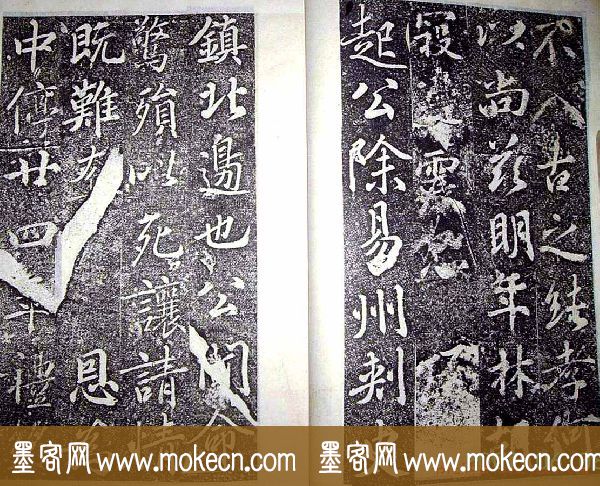 不入古之純孝何
以尚茲明年林
起公除易州刺史
鎮北邊也公聞命
驚殞以死讓請情
既難 恩
中停廿四年禮
墨客网 www.mokecn.com 墨客网 www.mokecn.com